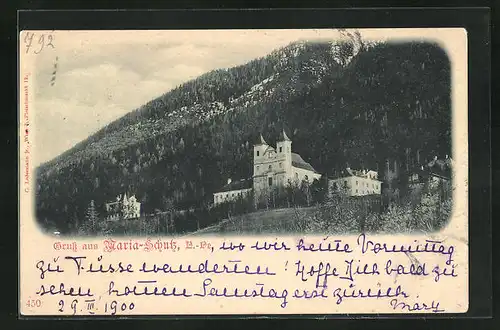 1792
C. Ledermann jr., Wien I., Fleischmarkt 12.
Gruß aus Maria-Schutz, wo wir heute Vormittag
zu Fusse wanderten! Hoffe Dich bald zu
sehen, kommen Samstag erst zurück. Mary
450
29. III 1900